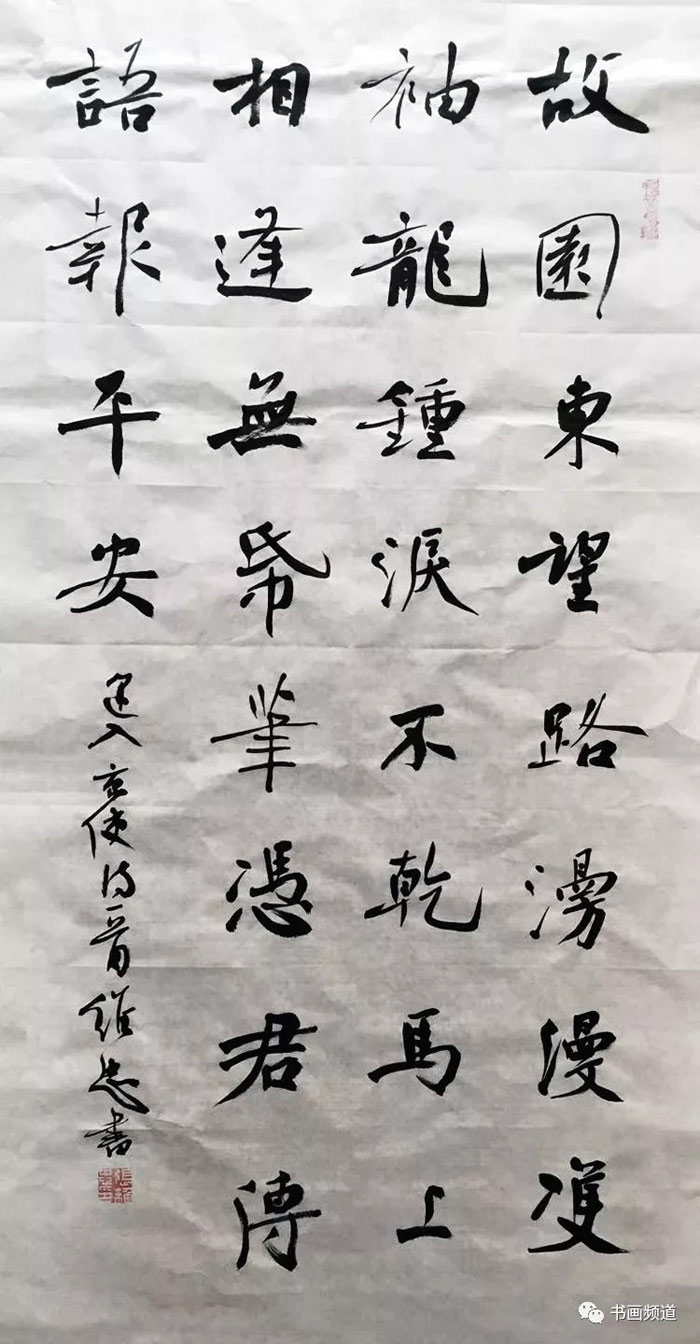 故園東望路漫漫雙
袖龍鍾淚不乾馬上
相逢無帋筆憑君傳
語報平安
逢入京使詩一首維忠書
书画频道